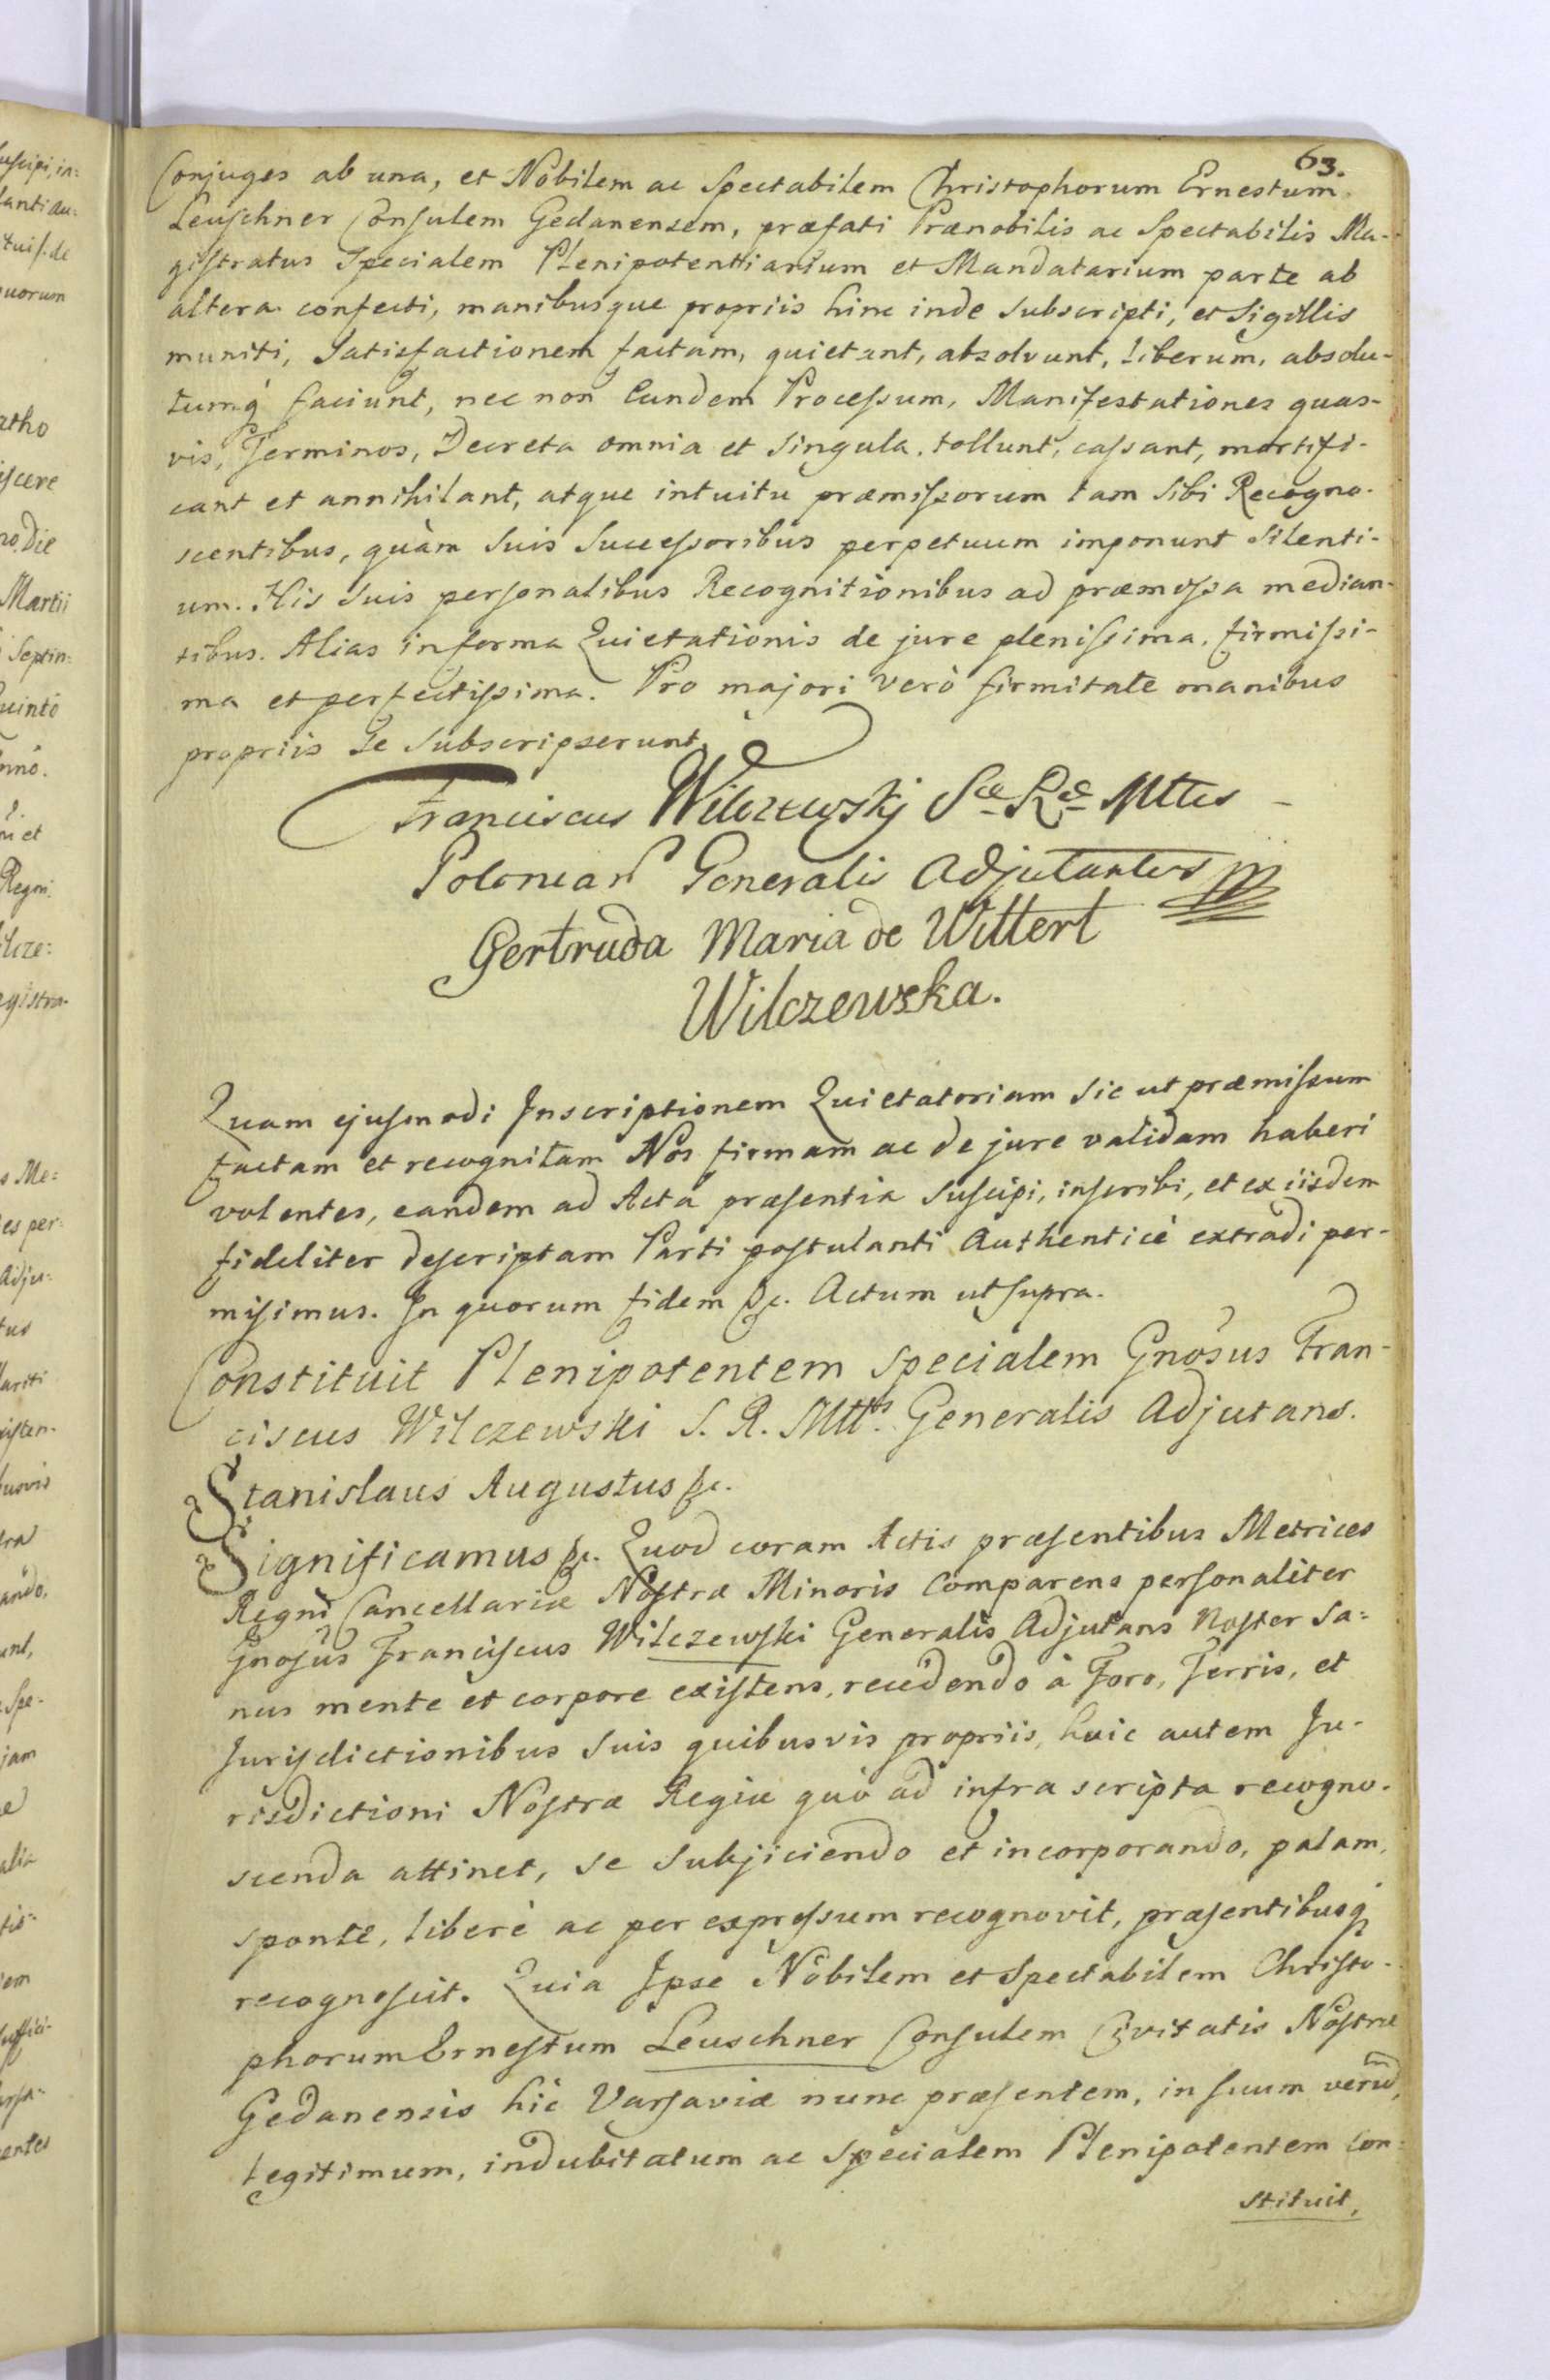 63.
Conjuges ab una, et Nobilem ac Spectabilem Christophorum Ernestum
Leuschner Consulem Gedanensem, præfati Prænobilis ac Spectabilis Ma-
gistratus Specialem Plenipotentiarium et Mandatarium parte ab
altera confecti, manibusque propriis hinc inde subscripti, et Sigillis
muniti, Satisfactionem factam, quietant, absolvunt, liberum, absolu-
tumq́ faciunt, nec non Eundem Processum, Manifestationes quas-
vis, Terminos, Decreta omnia et singula tollunt, cassant, mortifi-
cant et annihilant, atque intuitu præmissorum tam Sibi Recogno-
scentibus, quàm Suis Successoribus perpetuum imponunt Silenti-
um. His Suis personalibus Recognitionibus ad præmissa median-
tibus. Alias in forma Quietationis de jure plenissima, firmissi-
ma et perfectissima. Pro majori verò firmitate manibus
propriis Se Subscripserunt.
Franciscus Wilczewskj Sæ Ræ Mttis
Generalis Adjutantes
Gertruda Maria de Wittert
Wilczewska.
Quam ejusmodi Inscriptionem Quietatoriam sic ut præmissum
factam et recognitam Nos firmam ac de jure validam haberi
volentes, eandem ad Acta præsentia suscipi, inscribi, et ex iisdem
fideliter descriptam Parti postulanti Authenticè extradi per-
misimus. In quorum fidem &c. Actum ut supra.
Constituit Plenipotentem specialem Gnosus Fran-
ciscus Wilczewski S. R. Mttis Generalis Adjutans.
Stanislaus Augustus &c.
Significamus &c. Quod coram Actis præsentibus Metrices
Regni Cancellariæ Nostræ Minoris Comparens personaliter
Gnosus Franciscus Wilczewski Generalis Adjutans Noster Sa=
nus mente et corpore existens, recedendo à Foro, Terris, et
Jurisdictionibus suis quibusvis propriis, huic autem Ju-
risdictioni Nostræ Regiæ quò ad infra scripta recogno-
scenda attinet, se subjiciendo et incorporando, palam,
sponte, liberè ac per expressum recognovit, præsentibusq́
recognoscit. Quia Ipse Nobilem et Spectabilem Christo-
phorum Ernestum Leuschner Consulem Civitatis Nostræ
Gedanensis hic Varsaviæ nunc præsentem, in suum verum,
legitimum, indubitatum ac specialem Plenipotentem con-
stituit,